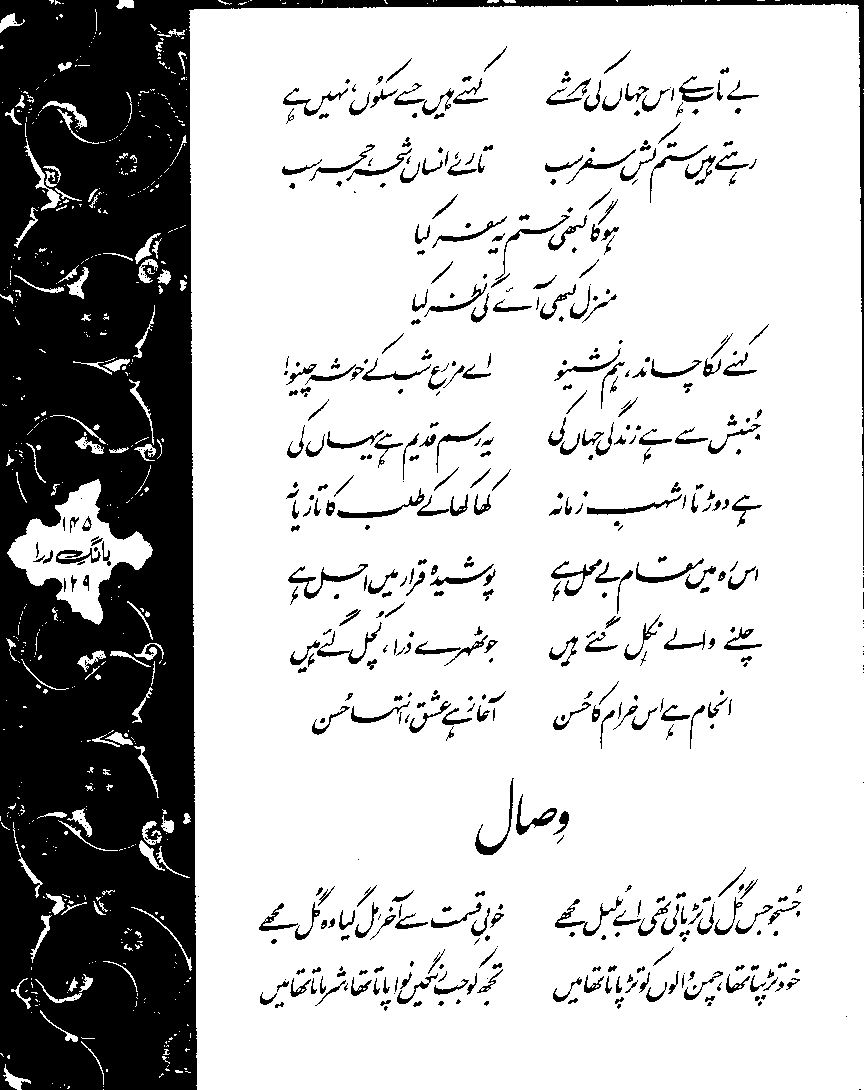 بے تاب ہے اس جہاں کی ہر شے کہتے ہیں جسے سکُوں، نہیں ہے
رہتے ہیں ستم کشِ سفر سب تارے، انساں، شجر، حجر سب
ہوگا کبھی ختم یہ سفر کیا
منزل کبھی آئے گی نظر کیا
کہنے لگا چاند، ہم نشینو اے مزرعِ شب کے خوشہ چینو!
جُنبش سے ہے زندگی جہاں کی یہ رسم قدیم ہے یہاں کی
ہے دوڑتا اشہبِ زمانہ کھا کھا کے طلب کا تازیانہ
اس رہ میں مقام بے محل ہے پوشیدہ قرار میں اجل ہے
چلنے والے نکل گئے ہیں جو ٹھہرے ذرا، کُچل گئے ہیں
انجام ہے اس خرام کا حُسن آغاز ہے عشق، انتہا حُسن
وِصال
جُستجو جس گُل کی تڑپاتی تھی اے بُلبل مجھے خوبیِ قسمت سے آخر مل گیا وہ گُل مجھے
خود تڑپتا تھا، چمن والوں کو تڑپاتا تھا میں تجھ کو جب رنگیں نوا پاتا تھا، شرماتا تھا میں
۱۴۵
بانگِ درا
۱۲۹